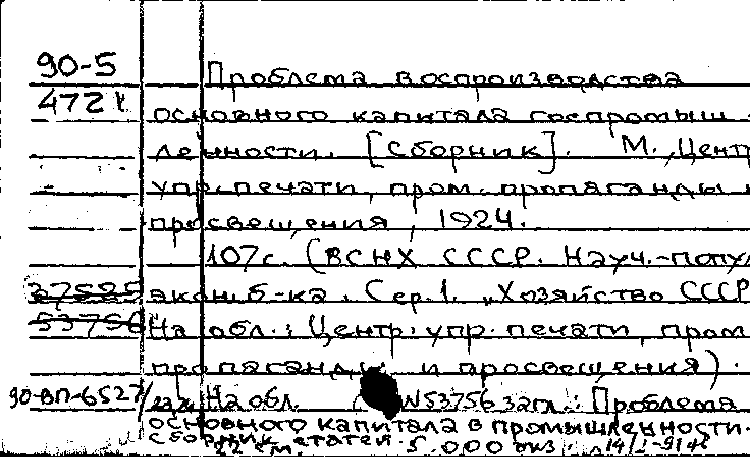 90-5
Проблема воспроизводства
472
основного капитала госпромыш-
ленности. [Сборник]. М., Центр
упр. печати, пром. пропаганды и
просвещения, 1924.
107с. (ВСНХ СССР. Науч.-попул
37525 экон. б-ка. Сер. 1. "Хозяйство СССР
53756 На обл.: Центр. упр. печати, пром
пропаганды и просвещения).
90-ВП-6527/ На обл. N53756 загл.: Проблема
основного капитала в промышленности.
Сборник статей. 5.000 экз.
22 см. 14/I-91